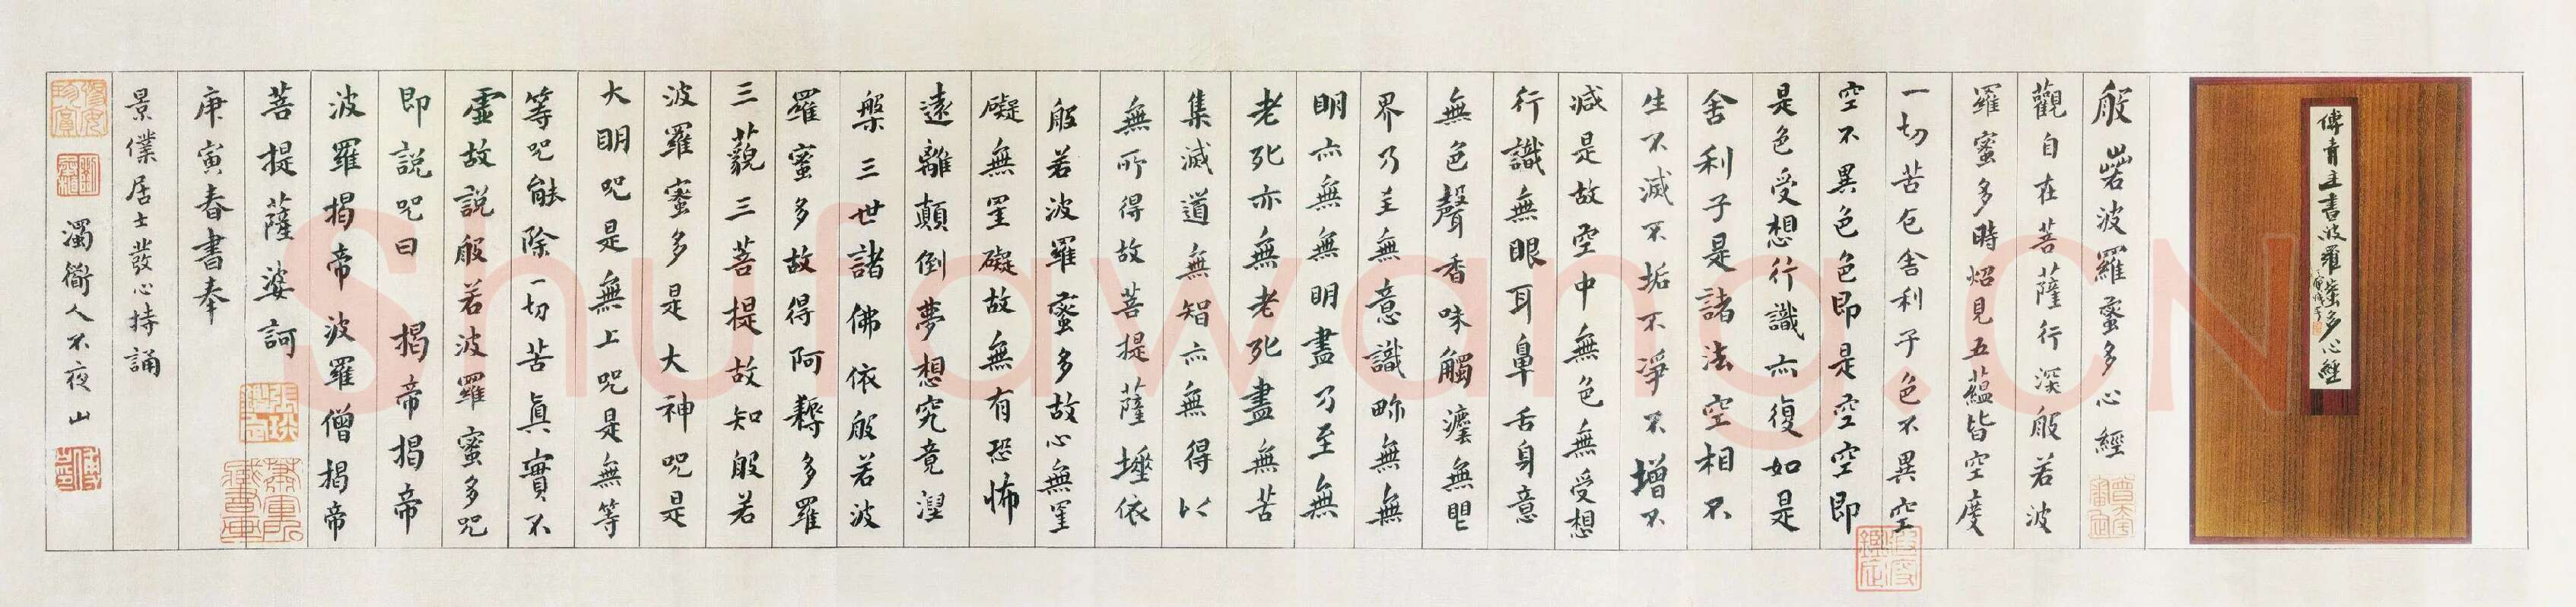 傅青主書波羅蜜多心經
般若波羅蜜多心經
觀自在菩薩行深般若波
羅蜜多時炤見五蘊皆空度
一切苦厄舍利子色不異空
空不異色色即是空空即
是色受想行識亦復如是
舍利子是諸法空相不
生不滅不垢不淨不增不
減是故空中無色無受想
行識無眼耳鼻舌身意
無色聲香味觸灋無眼
界乃至無意識界無無
明亦無無明盡乃至無
老死亦無老死盡無苦
集滅道無智亦無得以
無所得故菩提薩埵依
般若波羅蜜多故心無罣
礙無罣礙故無有恐怖
遠離顛倒夢想究竟涅
槃三世諸佛依般若波
羅蜜多故得阿耨多羅
三藐三菩提故知般若
波羅蜜多是大神咒是
大明咒是無上咒是無等
等咒能除一切苦真實不
虛故說般若波羅蜜多咒
即說咒曰 揭帝揭帝
波羅揭帝波羅僧揭帝
菩提薩婆訶
庚寅春書奉
景僕居士發心持誦
濁衜人不夜山
Shufawang.CN